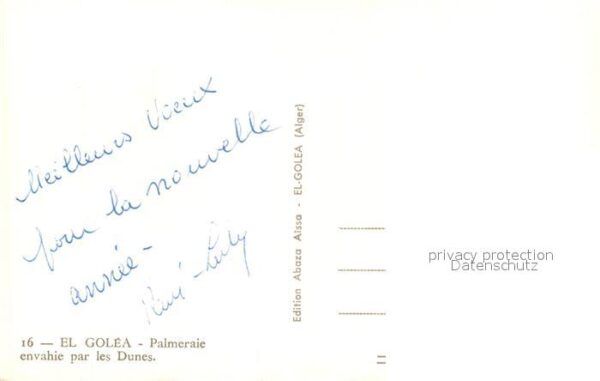 Meilleurs Vieux
pour la nouvelle
année -
René - Lily
16 — EL GOLÉA - Palmeraie
envahie par les Dunes.
Edition Abaza Aissa - EL-GOLEA (Alger)
privacy protection
Datenschutz